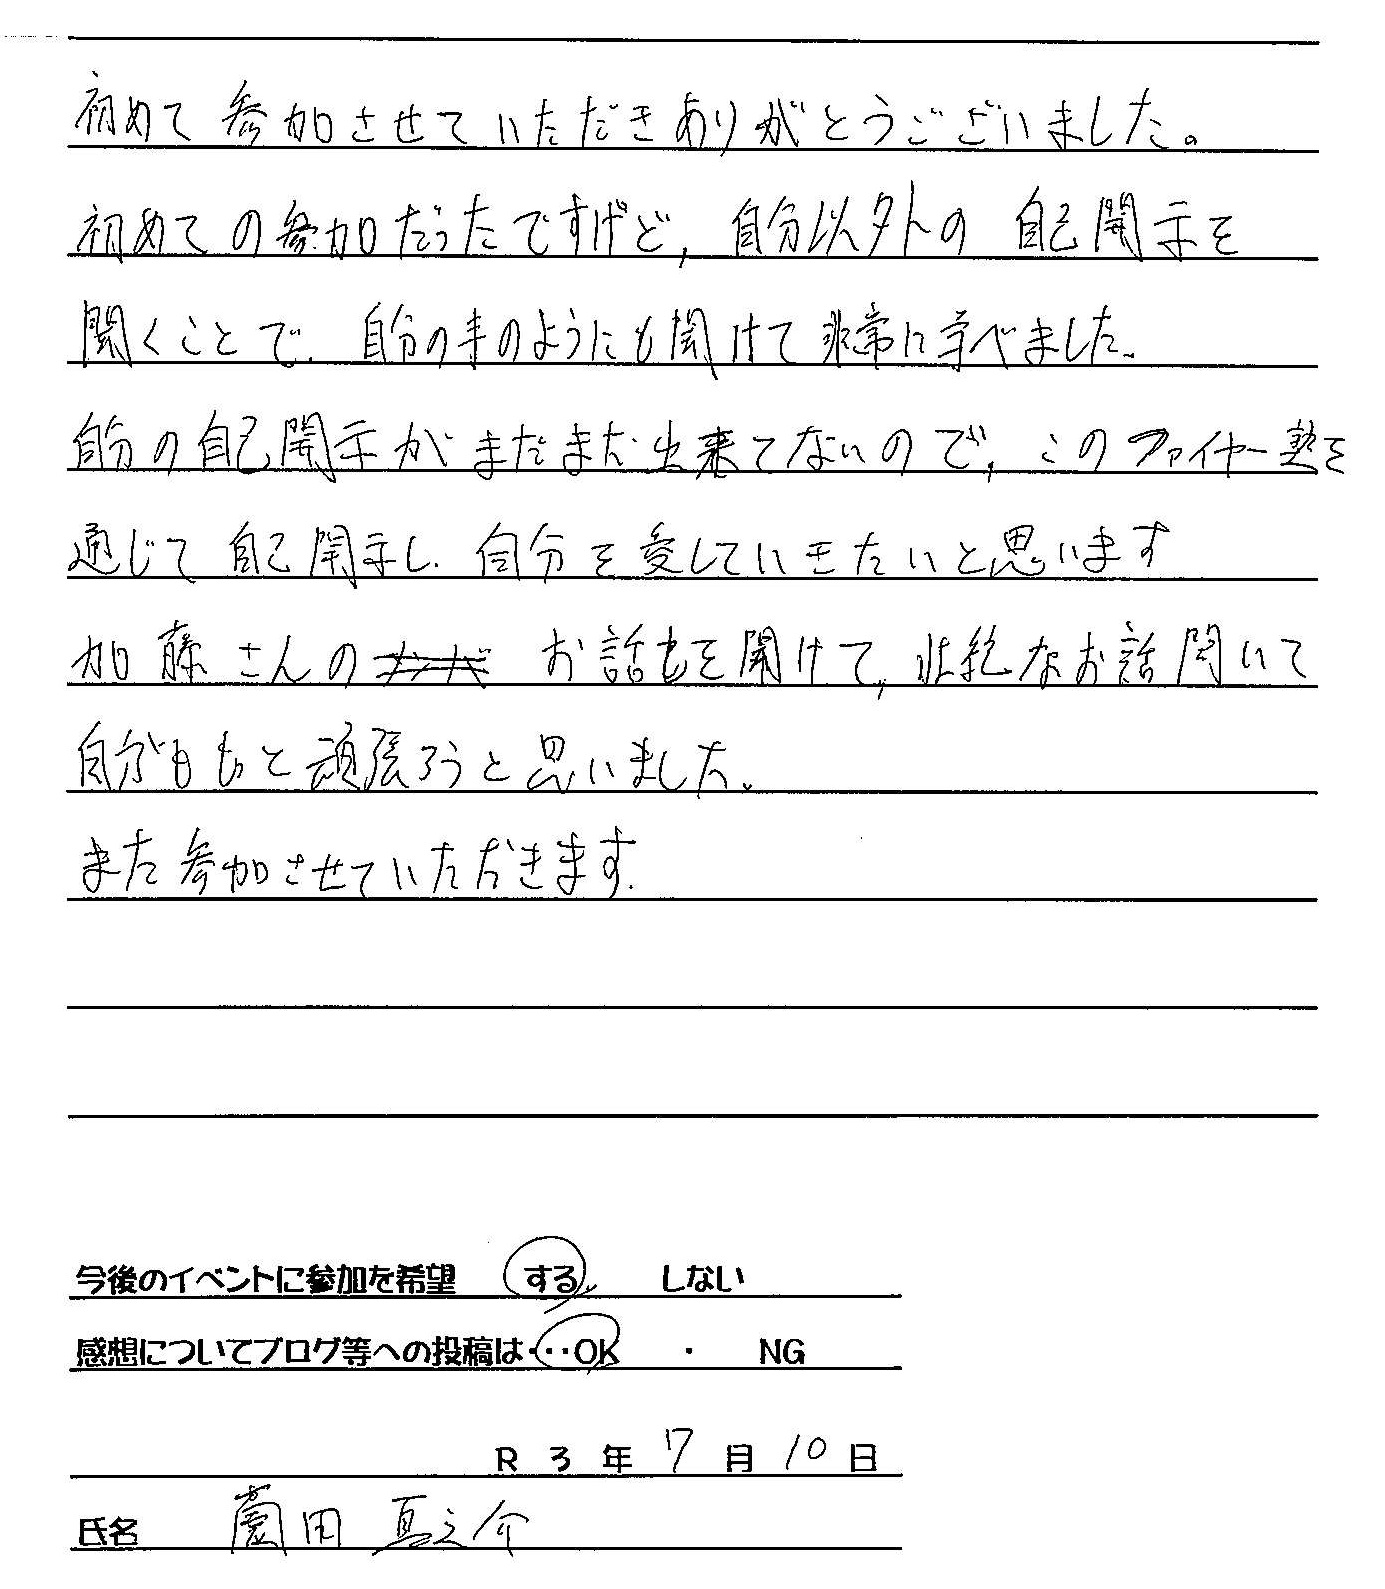 初めて参加させていただきありがとうございました。
初めての参加だったですけど、自分以外の自己開示を
聞くことで、自分の事のようにも聞けて非常に学べました。
自分の自己開示がまだまだ出来てないので、このファイヤー塾を
通じて自己開示し、自分を愛していきたいと思います
加藤さんの お話もを聞けて、壮絶なお話聞いて
自分ももっと頑張ろうと思いました。
また参加させていただきます.
今後のイベントに参加を希望 する しない
感想についてブログ等への投稿は・・・OK ・ NG
R 3 年 7 月 10 日
氏名 薗田 真之介